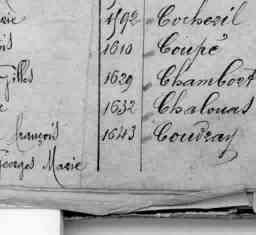 1592 Cocheril
1610 Coupé
Gilles 1629 Chambort
1632 Chalouas
François 1643 Coudray
Georges Marie